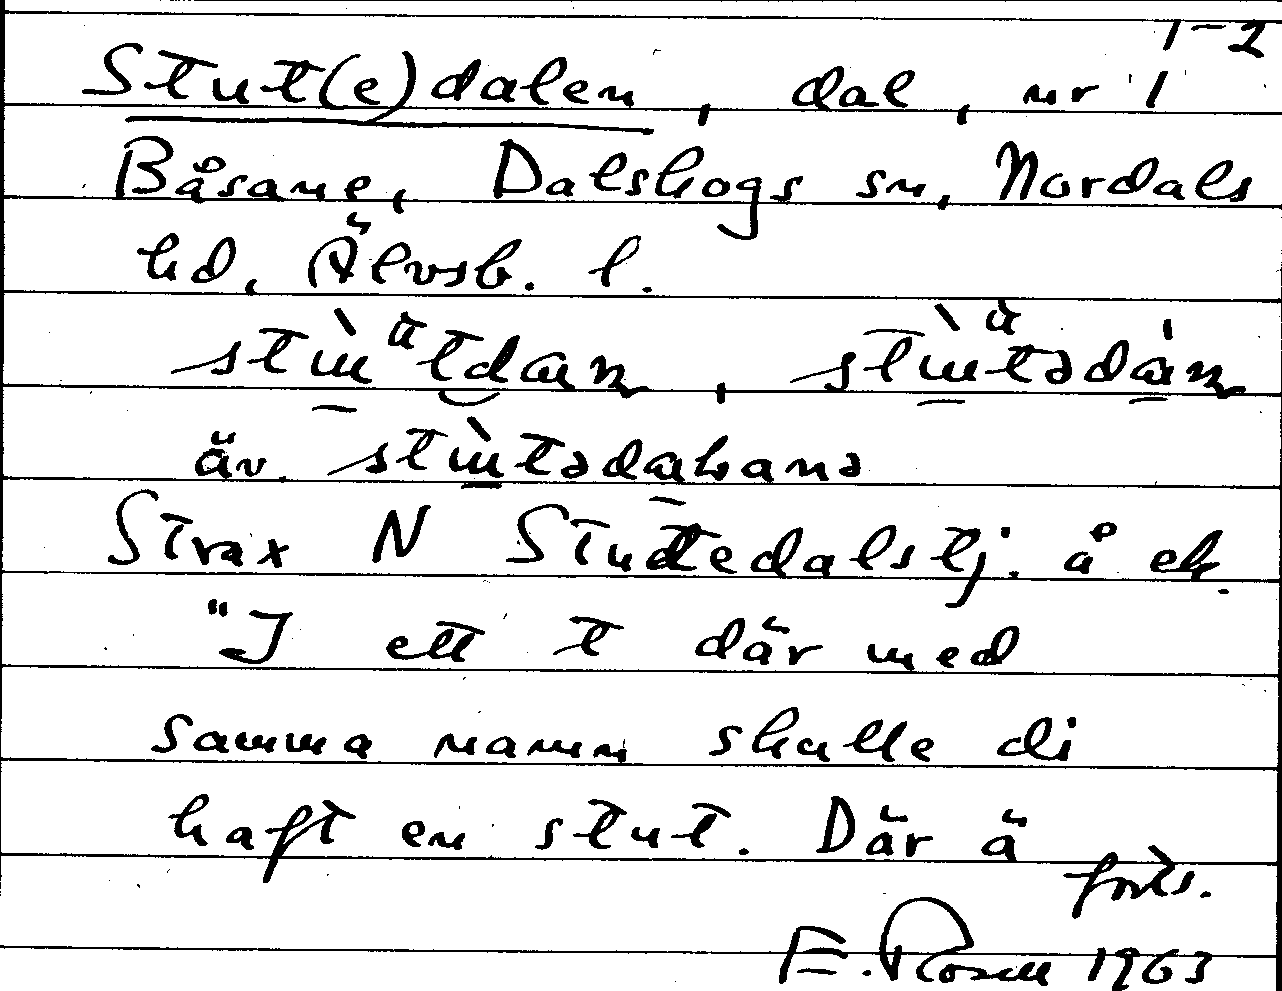 1-2
Stut(e)dalen, dal, nr 1
Båsane, Dalskogs sn, Nordals
hd, Älvsb. l.
äv.
Strax N Stutedalstj. å ek.
"I ett t där med
samma namn skulle di
haft en stut. Där ä
forts.
E. Rosell 1963